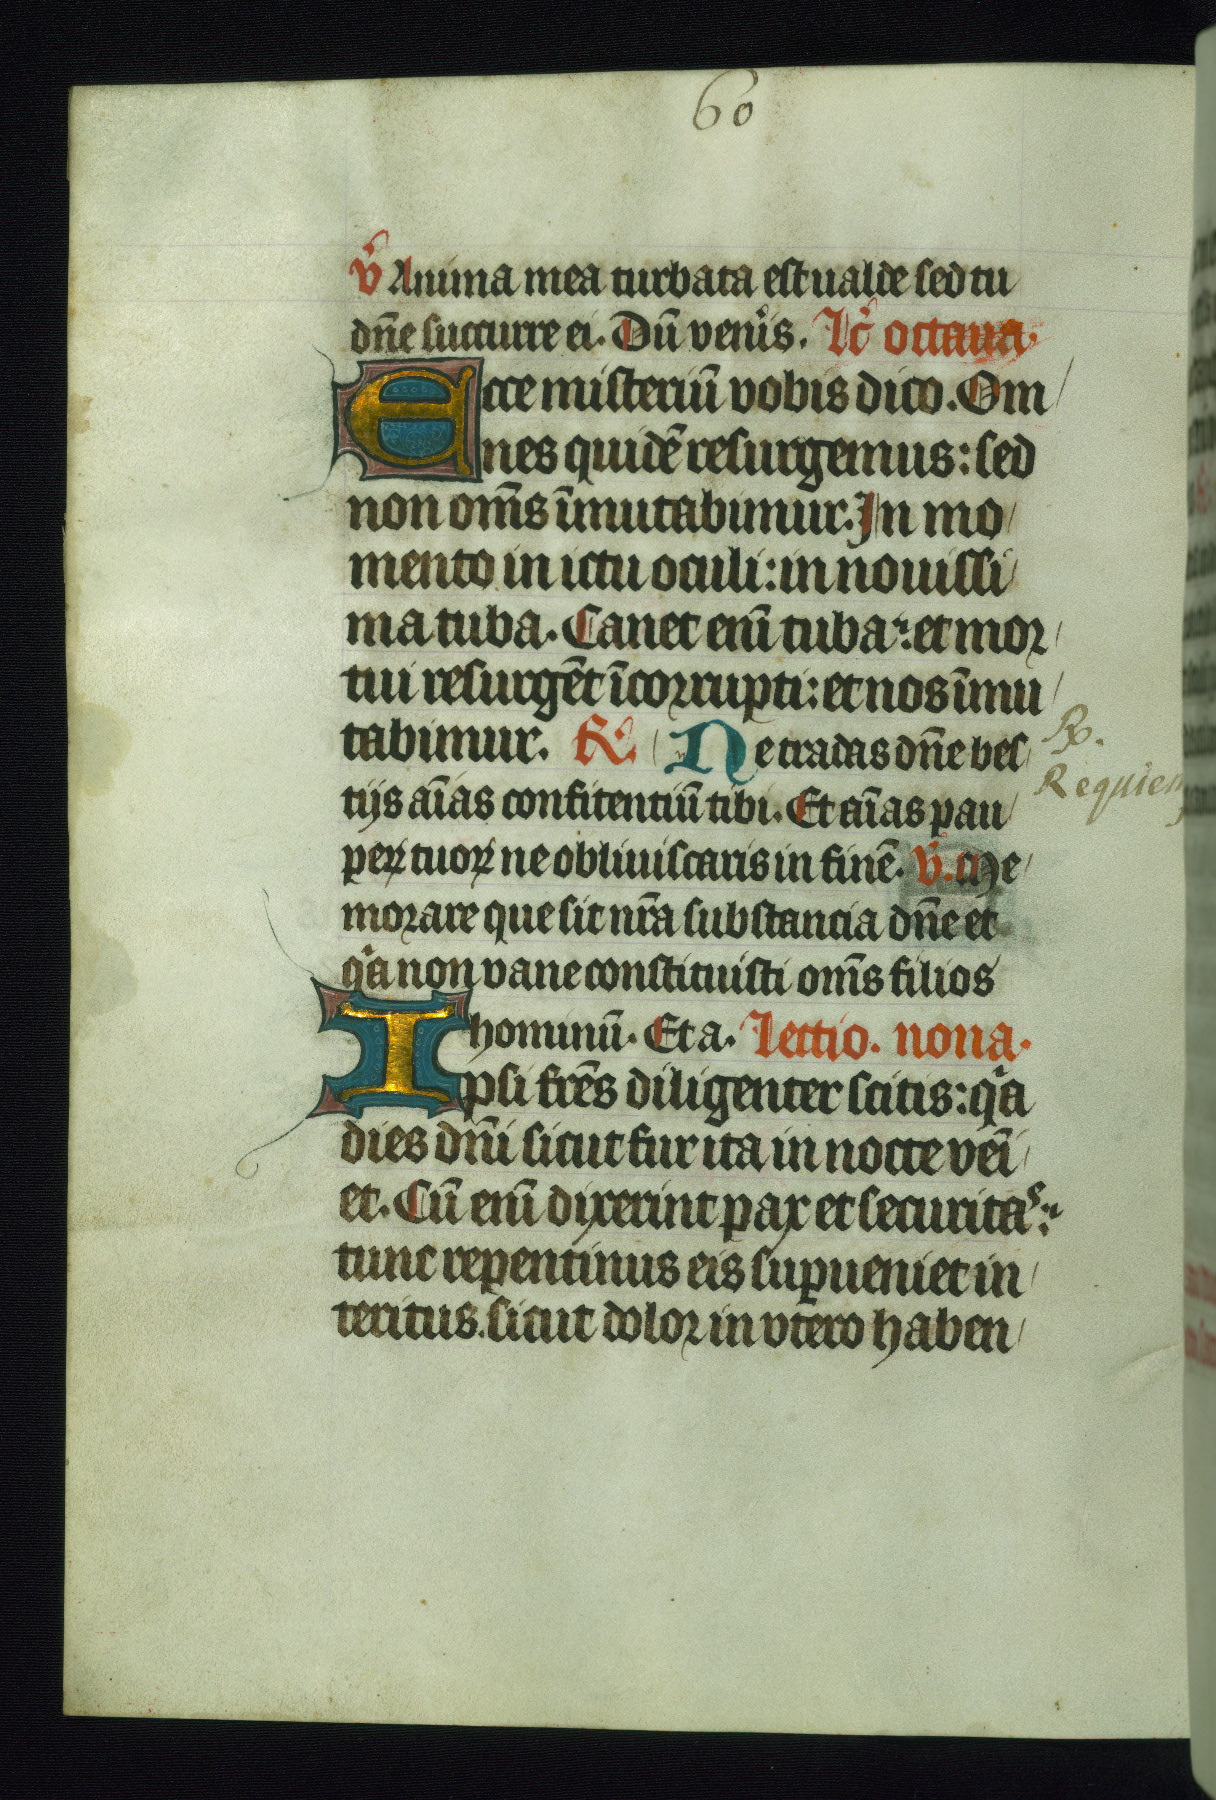 60
v̄ Anima mea turbata est ualde sed tu
dn̄e succurre ei. Dū venᵉis. Lc̄ octaua.
Ecce misteriū vobis dico. Om
nes quidē resurgemus: sed
non om̄s īmutabimur. In mo
mento in ictu oculi: in nouissi
ma tuba. Canet enī tuba: et mor
tui resurgēt īcorrupti: et nos īmu
tabimur. R̄. Ne tradas dn̄e bes
tijs aīas confitentiū tibi. Et aīas pau
peꝝ tuoꝝ ne obliuiscaris in finē. v̄. Me
morare que sit nr̄a substancia dn̄e et
qᵃa non vane constituisti om̄s filios
hominū. Et a. Lectio. nona.
Ipsi fr̄es diligenter scitis: qᵃa
dies dn̄i sicut fur ita in nocte veī
et. Cū enī dixerint pax et securitaˢ:
tunc repentinus eis suꝑueniet in
teritus. sicut dolor in vtero haben
℞.
Requiem